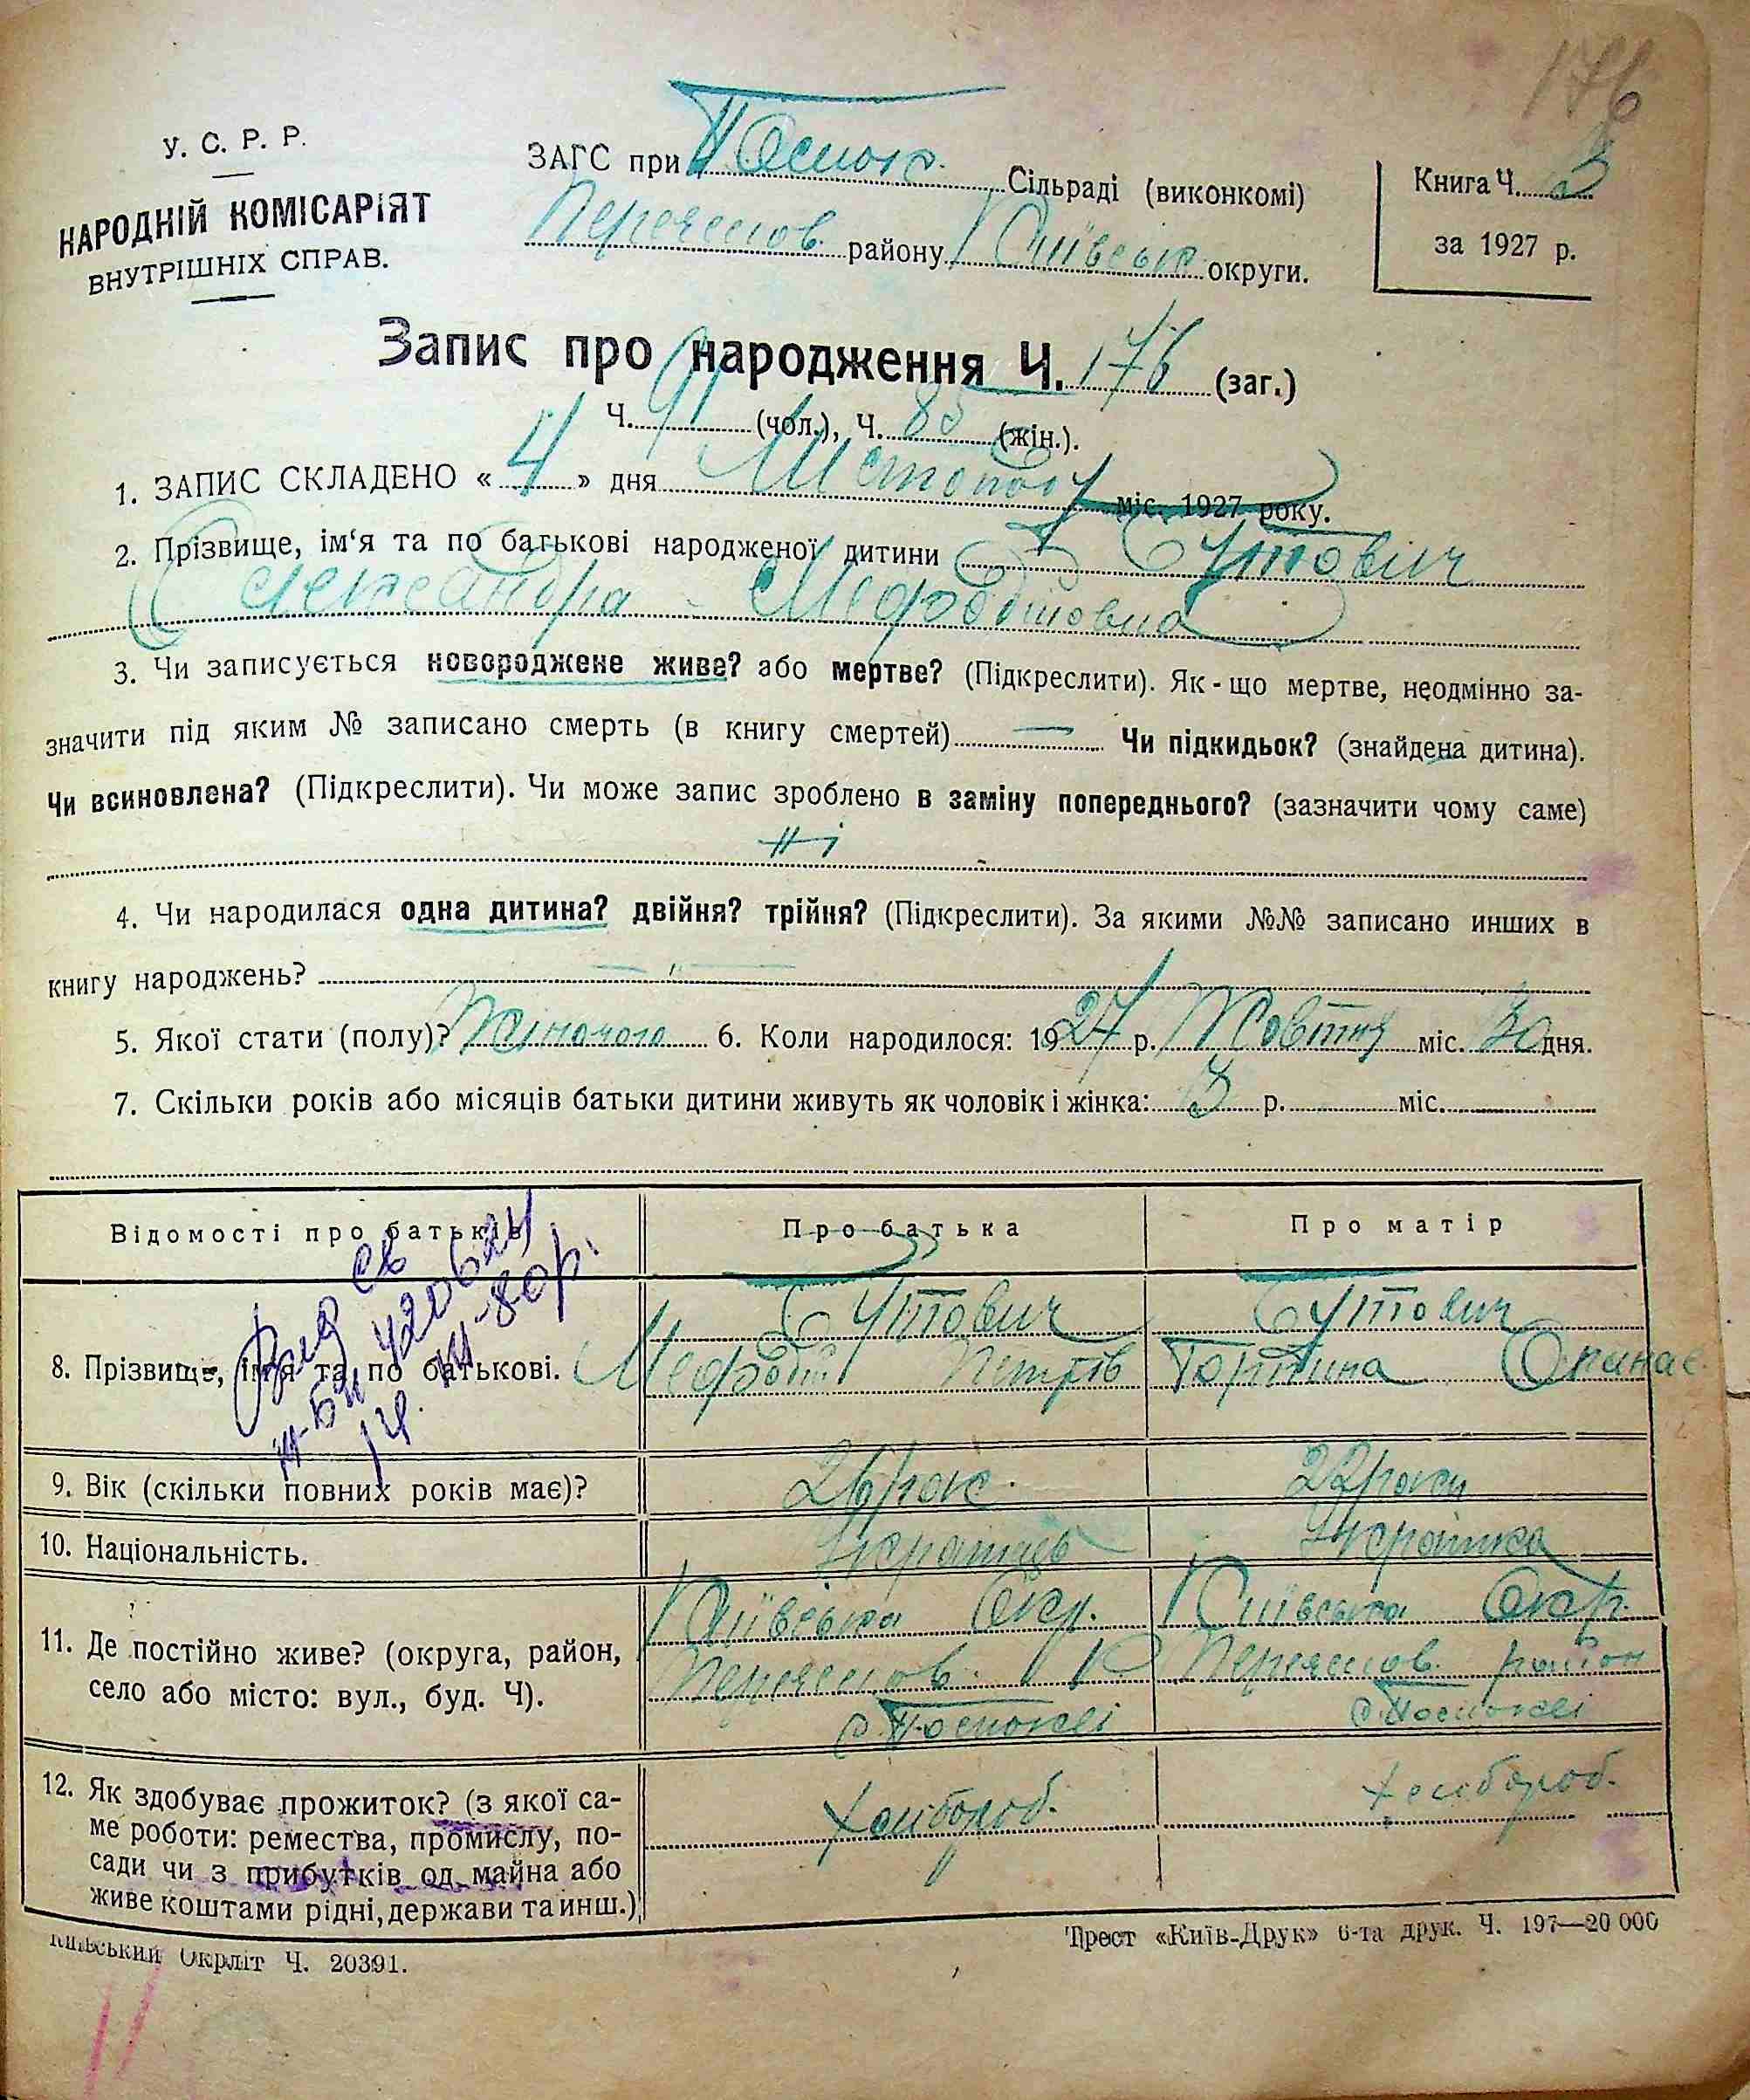 176
У. С. Р. Р.
НАРОДНІЙ КОМІСАРІЯТ
ВНУТРІШНІХ СПРАВ.
ЗАГС при Сільраді (виконкомі)
Переяслов. району Київськ округи.
Книга Ч. 3
за 1927 р.
Запис про народження Ч. 176 (заг.)
Ч. 91 (чол.), Ч. 85 (жін.).
1. ЗАПИС СКЛАДЕНО « 4 » дня Листопаду міс. 1927 року.
2. Прізвище, ім‘я та по батькові народженої дитини Бутович
Олександра Мефодіївна
3. Чи записується новороджене живе? або мертве? (Підкреслити). Як-що мертве, неодмінно за-
значити під яким № записано смерть (в книгу смертей) — Чи підкидьок? (знайдена дитина).
Чи всиновлена? (Підкреслити). Чи може запис зроблено в заміну попереднього? (зазначити чому саме)
Ні
4. Чи народилася одна дитина? двійня? трійня? (Підкреслити). За якими №№ записано инших в
книгу народжень? — „ —
5. Якої стати (полу)? Жіночого 6. Коли народилося: 1927 р. Жовтня міс. 30 дня.
7. Скільки років або місяців батьки дитини живуть як чоловік і жінка: 3 р. міс.
Відомості про батьків Про батька Про матір
8. Прізвище, ім‘я та по батькові.
Бутович Бутович
Мефодій Петрів Горпина Опанас
9. Вік (скільки повних років має)? 26 рок. 22 роки
10. Національність. Українець Українка
11. Де постійно живе? (округа, район,
село або місто: вул., буд. Ч).
Київська Окр. Київська Окр.
Переяслов. Р Переяслов. район
12. Як здобуває прожиток? (з якої са-
ме роботи: ремества, промислу, по-
сади чи з прибутків од майна або
живе коштами рідні, держави та инш.)
хлібороб. хлібороб.
Київський Окрліт Ч. 20391.
Трест «Київ-Друк» 6-та друк. Ч. 197—20 000